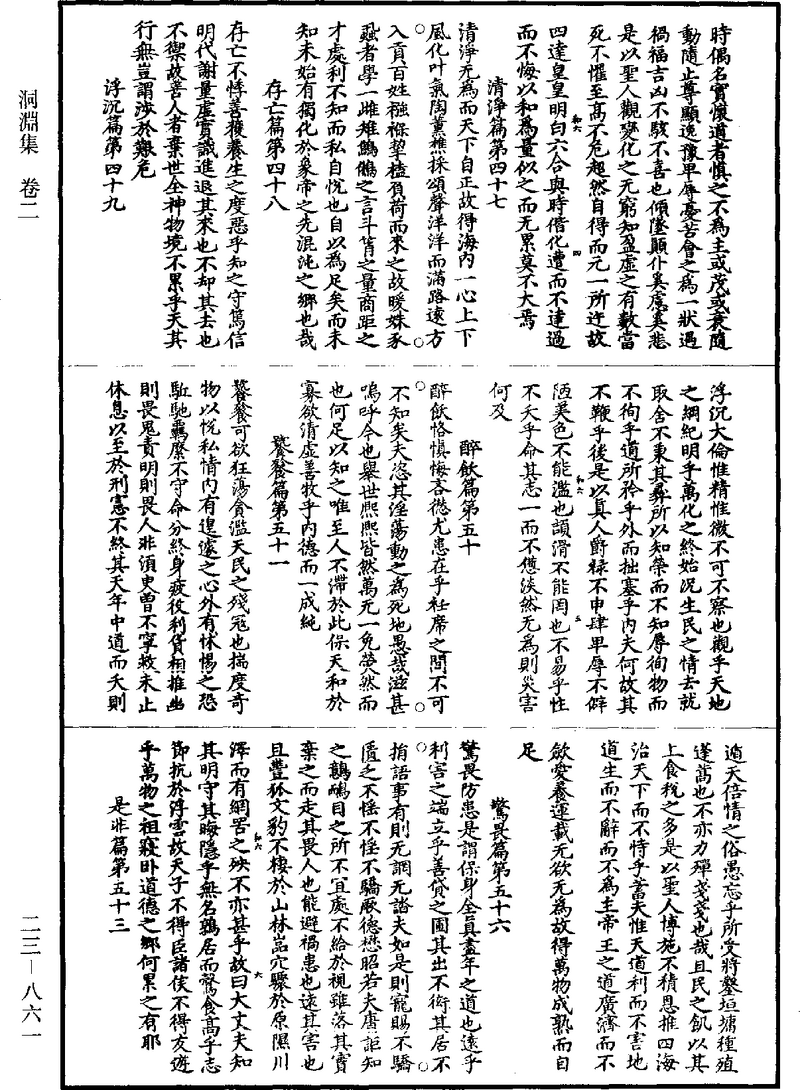 洞淵集　卷二
二三—八六一
時偶名實懷道者慎之不為主或茂或衰隨
動隨止尊顯逸豫卑辱憂苦會之為一狀遇
禍福吉凶不駭不喜也傾墜顛仆奚慮奚悲
是以聖人觀變化之无窮知盈虛之有數當
死不懼至高不危超然自得而元一所迕故
四達皇皇明曰六合與時偕化遭而不違過
而不悔以和為量似之而无累莫不大焉
清淨篇第四十七
清淨无為而天下自正故得海内一心上下
風化叶氣陶薰樵採頌聲洋洋而滿路遠方
入貢百姓襁褓挈榼負荷而來之故暖姝豕
蝨者學一雌雉鷦鷯之言斗筲之量商距之
才處利不知而私自悅也自以為足矣而未
知未始有獨化於象帝之先混沌之鄉也哉
存亡篇第四十八
存亡不悖善獲養生之度惡乎知之守篤信
明代謝量虛實識進退其求也不却其去也
不禦故善人者棄世全神物境不累乎天其
行無豈謂涉於艱危
浮沉篇第四十九
浮沉大倫惟精惟微不可不察也觀乎天地
之綱紀明乎萬化之終始況生民之情去就
取舍不秉其彝所以知榮而不知辱徇物而
不徇乎道所矜乎外而拙塞乎内夫何故其
不鞭乎後是以真人爵祿不申肆卑辱不僻
陋美色不能濫也頡滑不能罔也不易乎性
不夭乎命其志一而不憊淡然无為則災害
何及
醉飲篇第五十
醉飲恪慎悔吝愆尤患在乎衽席之間不可
不知矣夫恣其淫蕩動之為死地愚哉滋甚
嗚呼今也舉世熙熙皆然萬元一免煢然而
也何足以知之唯至人不滯於此保天和於
寡欲清虛善牧乎内德而一成純
饕餮篇第五十一
饕餮可欲狂蕩貪濫天民之殘寇也揣度奇
物以悅私情内有遑遽之心外有怵惕之恐
駈馳羈縻不守命分終身疲役利貨相推幽
則畏鬼責明則畏人非須臾曾不寧救未止
休息以至於刑憲不終其天年中道而夭則
遁天倍情之俗愚忘乎所受將鑿垣墉種殖
蓬蒿也不亦力殫戔戔也哉且民之飢以其
上食稅之多是以聖人博施不積恩推四海
治天下而不恃乎蓄夫惟天道利而不害地
道生而不辭而不為主帝王之道廣濟而不
斂愛養運載无欲无為故得萬物成熟而自
足
驚畏篇第五十六
驚畏防患是謂保身全真盡年之道也遠乎
利害之端立乎善貸之圃其出不衒其居不
掯語事有則无調无諮夫如是則寵賜不驕
匱乏不恠不恠不驕厥德懋昭若夫唐詎知
之鷾鴯目之所不宜處不給於視雖落其實
棄之而走其畏人也能避禍患也遠其害也
且豐狐文豹不棲於山林嵓穴驟於原隰川
澤而有網罟之殃不亦甚乎故曰大丈夫知
其明守其晦隱乎無名鶉居而鷇食高乎志
節抗於浮雲故天子不得臣諸侯不得友遊
乎萬物之祖寢卧道德之鄉何累之有耶
是非篇第五十三